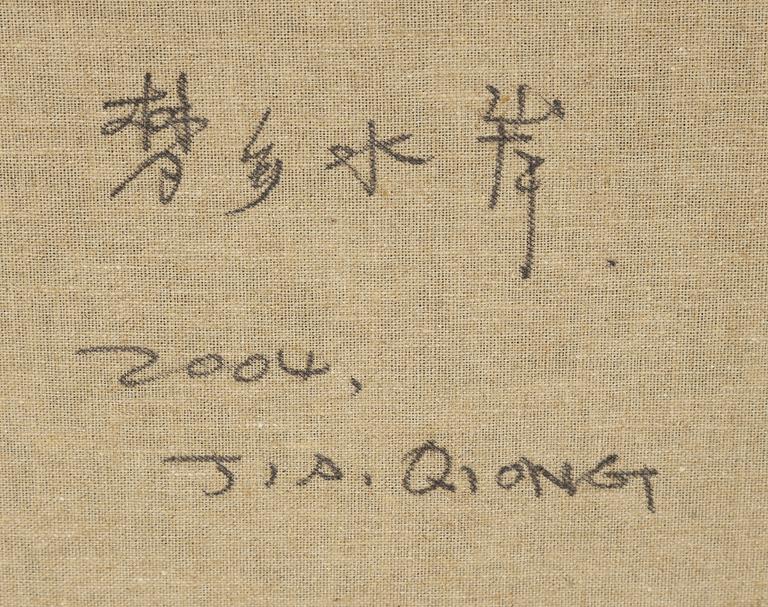 梦乡水岸.
2004,
JIA. QIONG